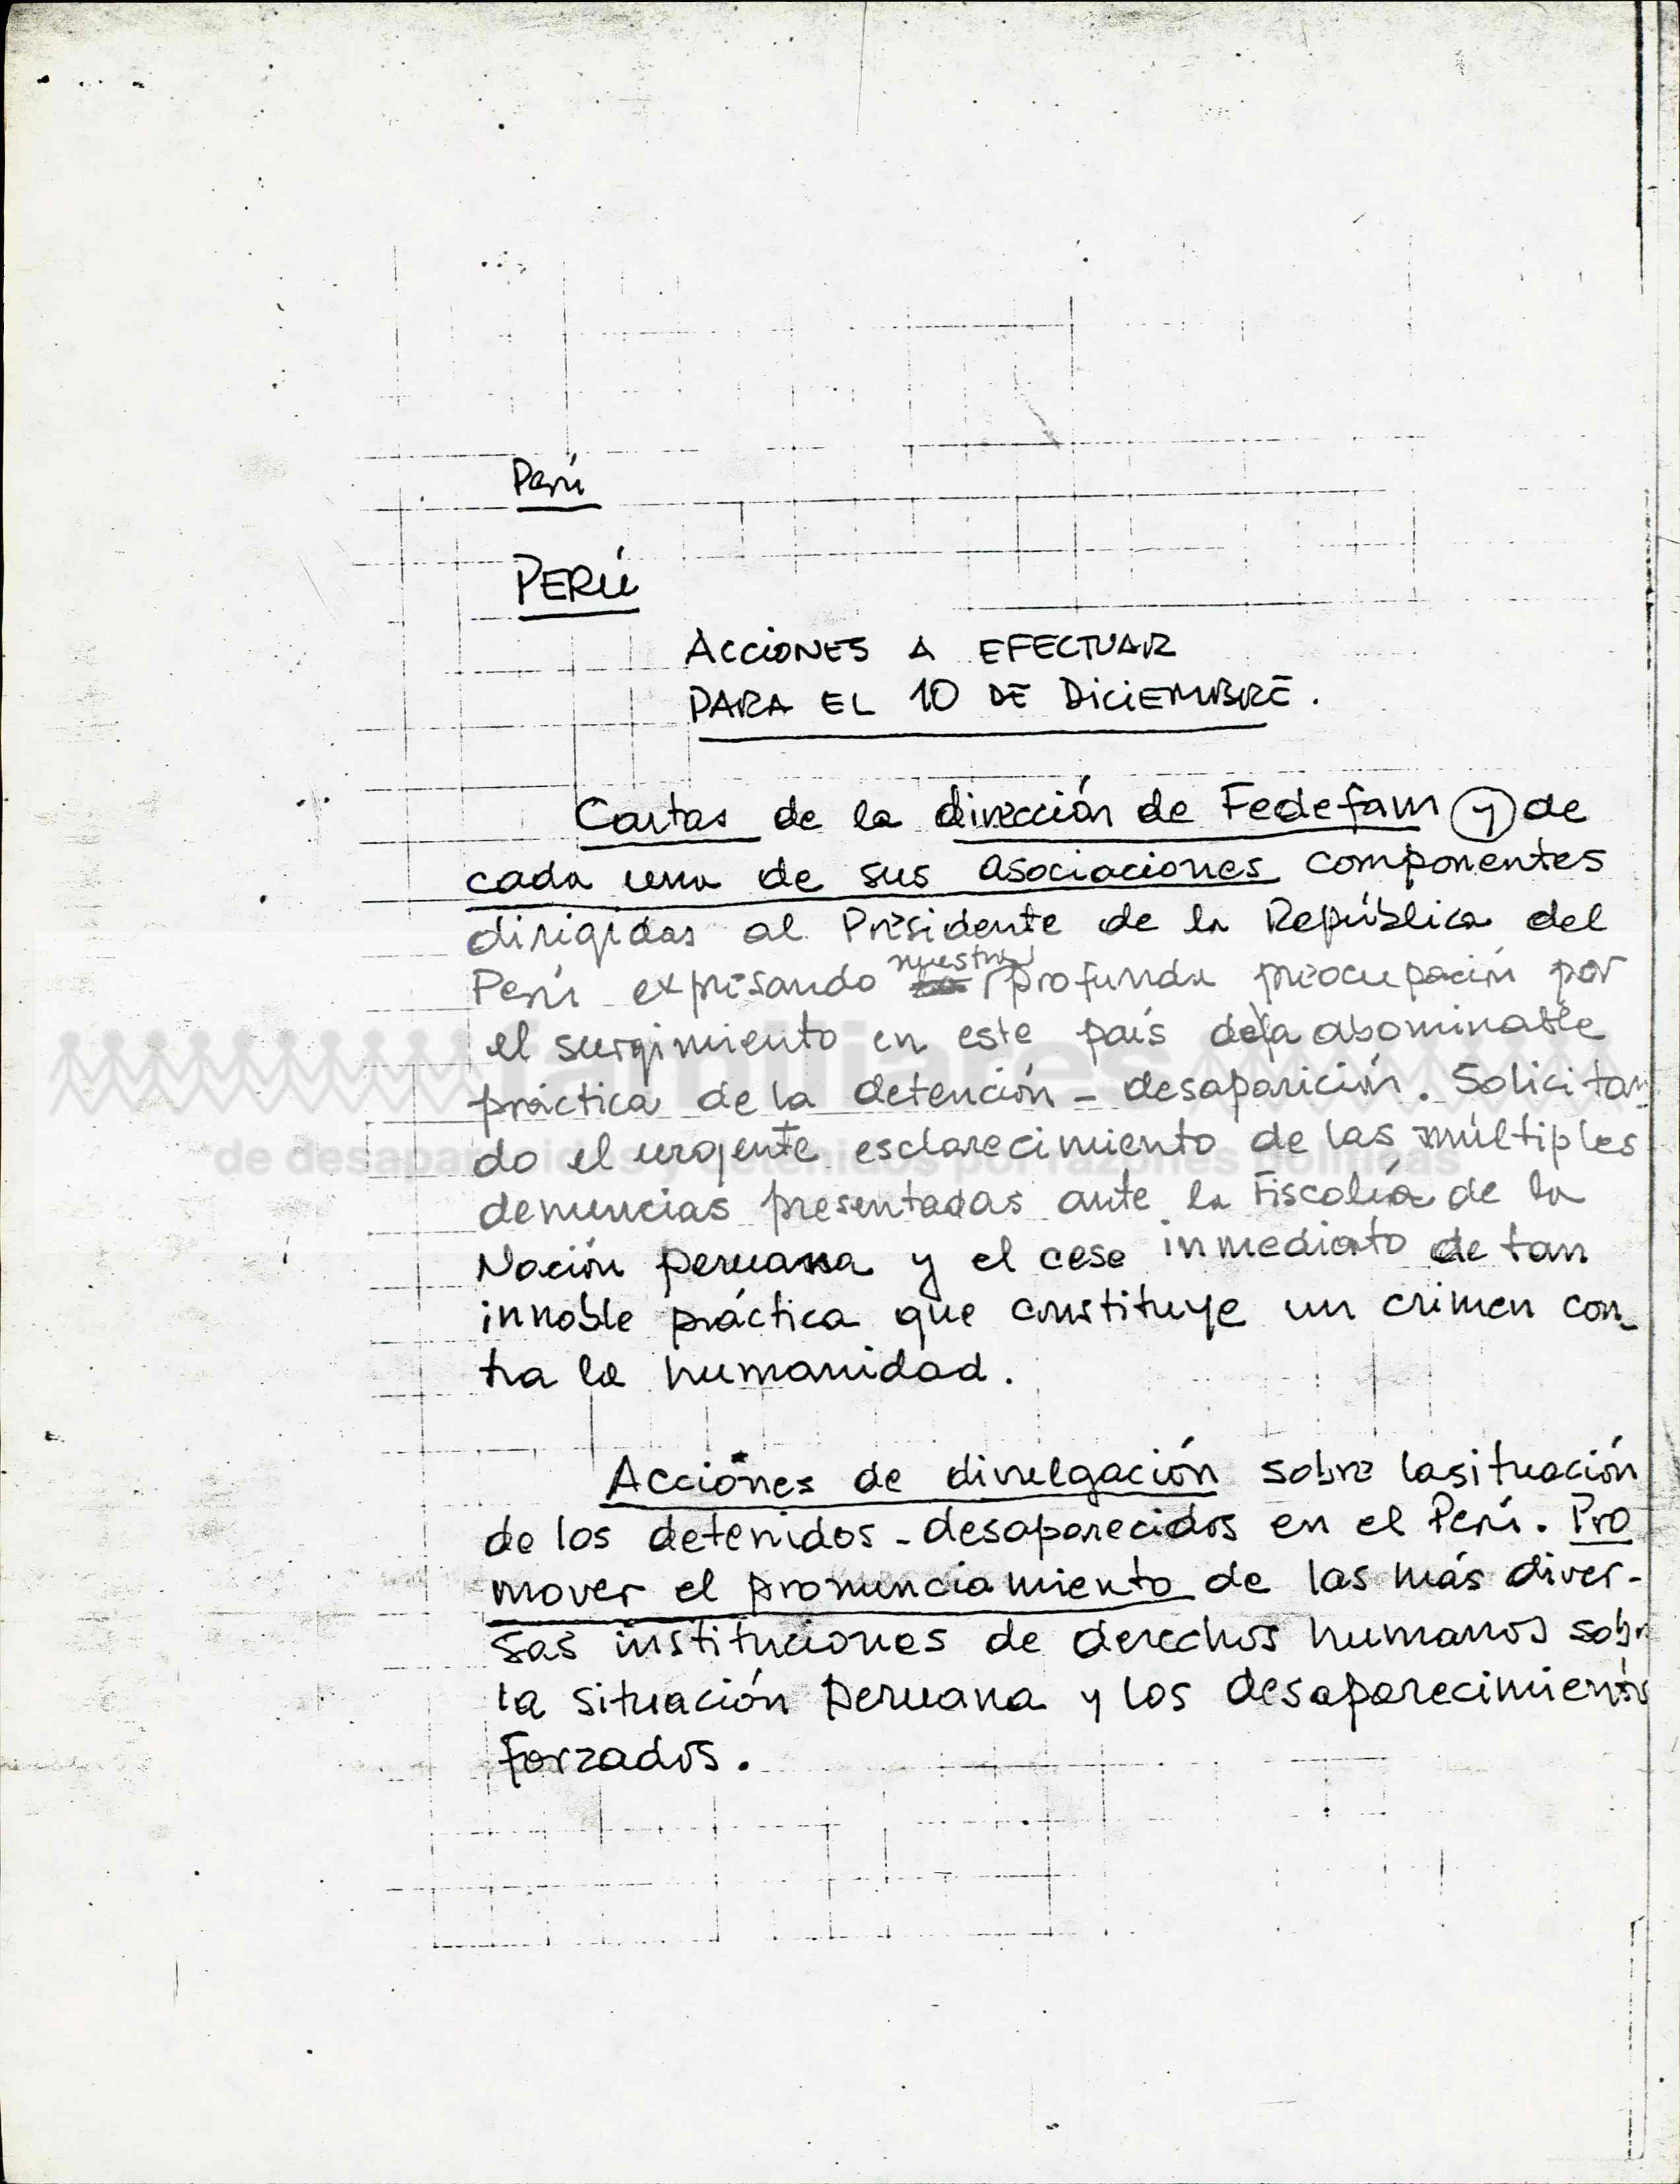 Perú
PERÚ
ACCIONES A EFECTUAR
PARA EL 10 DE DICIEMBRE.
Cartas de la dirección de Fedefam y de
cada una de sus asociaciones componentes
dirigidas al Presidente de la República del
nuestra
Perú expresando profunda preocupación por
el surgimiento en este país de la abominable
práctica de la detención - desaparición. Solicitan
do el urgente esclarecimiento de las múltiples
denuncias presentadas ante la Fiscalía de la
Nación peruana y el cese inmediato de tan
innoble práctica que constituye un crimen con-
tra la humanidad.
Acciones de divulgación sobre la situación
de los detenidos - desaparecidos en el Perú. Pro
mover el pronunciamiento de las más diver-
sas instituciones de derechos humanos sobr
la situación peruana y los desaparecimientos
forzados.
familiares
de desaparecidos y detenidos por razones políticas